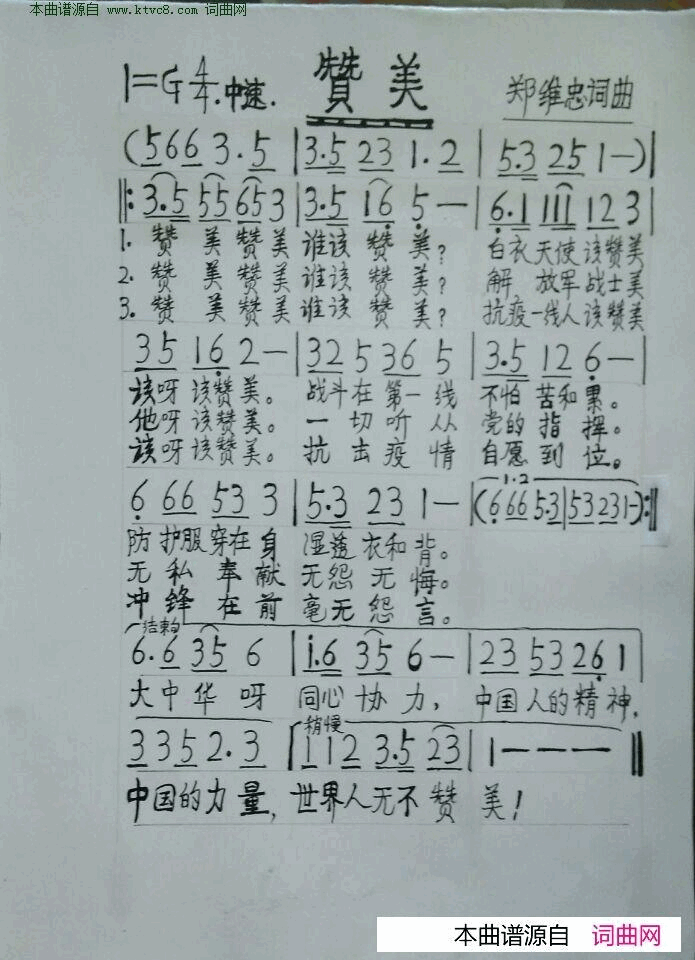 本曲谱源自 www.ktvc8.com 词曲网
1=G 4/4 .中速. 赞美 郑维忠词曲
(5663.5 | 3.5 23 1.2 | 5.3 25 1—)
‖: 3.5 55 65 3 | 3.5 16 5— | 6.1 111 12 3 |
1. 赞 美 赞 美 谁该 赞 美? 白衣天使该赞美
2. 赞 美 赞 美 谁该 赞 美? 解 放军战士美
3. 赞 美 赞 美 谁该 赞 美? 抗疫一线人该赞美
35 16 2— | 32 5 36 5 | 3.5 12 6— |
该呀该赞美。 战斗在第一线 不怕苦和累。
他呀该赞美。 一切听从 党的指挥。
该呀该赞美。 抗击疫情 自愿到位。
1.2
6 66 53 3 | 5.3 23 1— | (6 66 53.3 | 53 23 1—) :‖
防护服穿在身 湿透衣和背。
无私奉献 无怨无悔。
冲锋在前 毫无怨言。
结束句
6.6 35 6 | i.6 35 6— | 23 53 26 1
大中华呀 同心协力, 中国人的精神,
稍慢
3352.3 | 112 3.5 23 | 1——— ‖
中国的力量, 世界人无不赞美!
本曲谱源自 词曲网